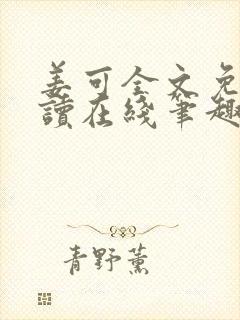 姜可全文免
讀在綫筆趣
青野薰